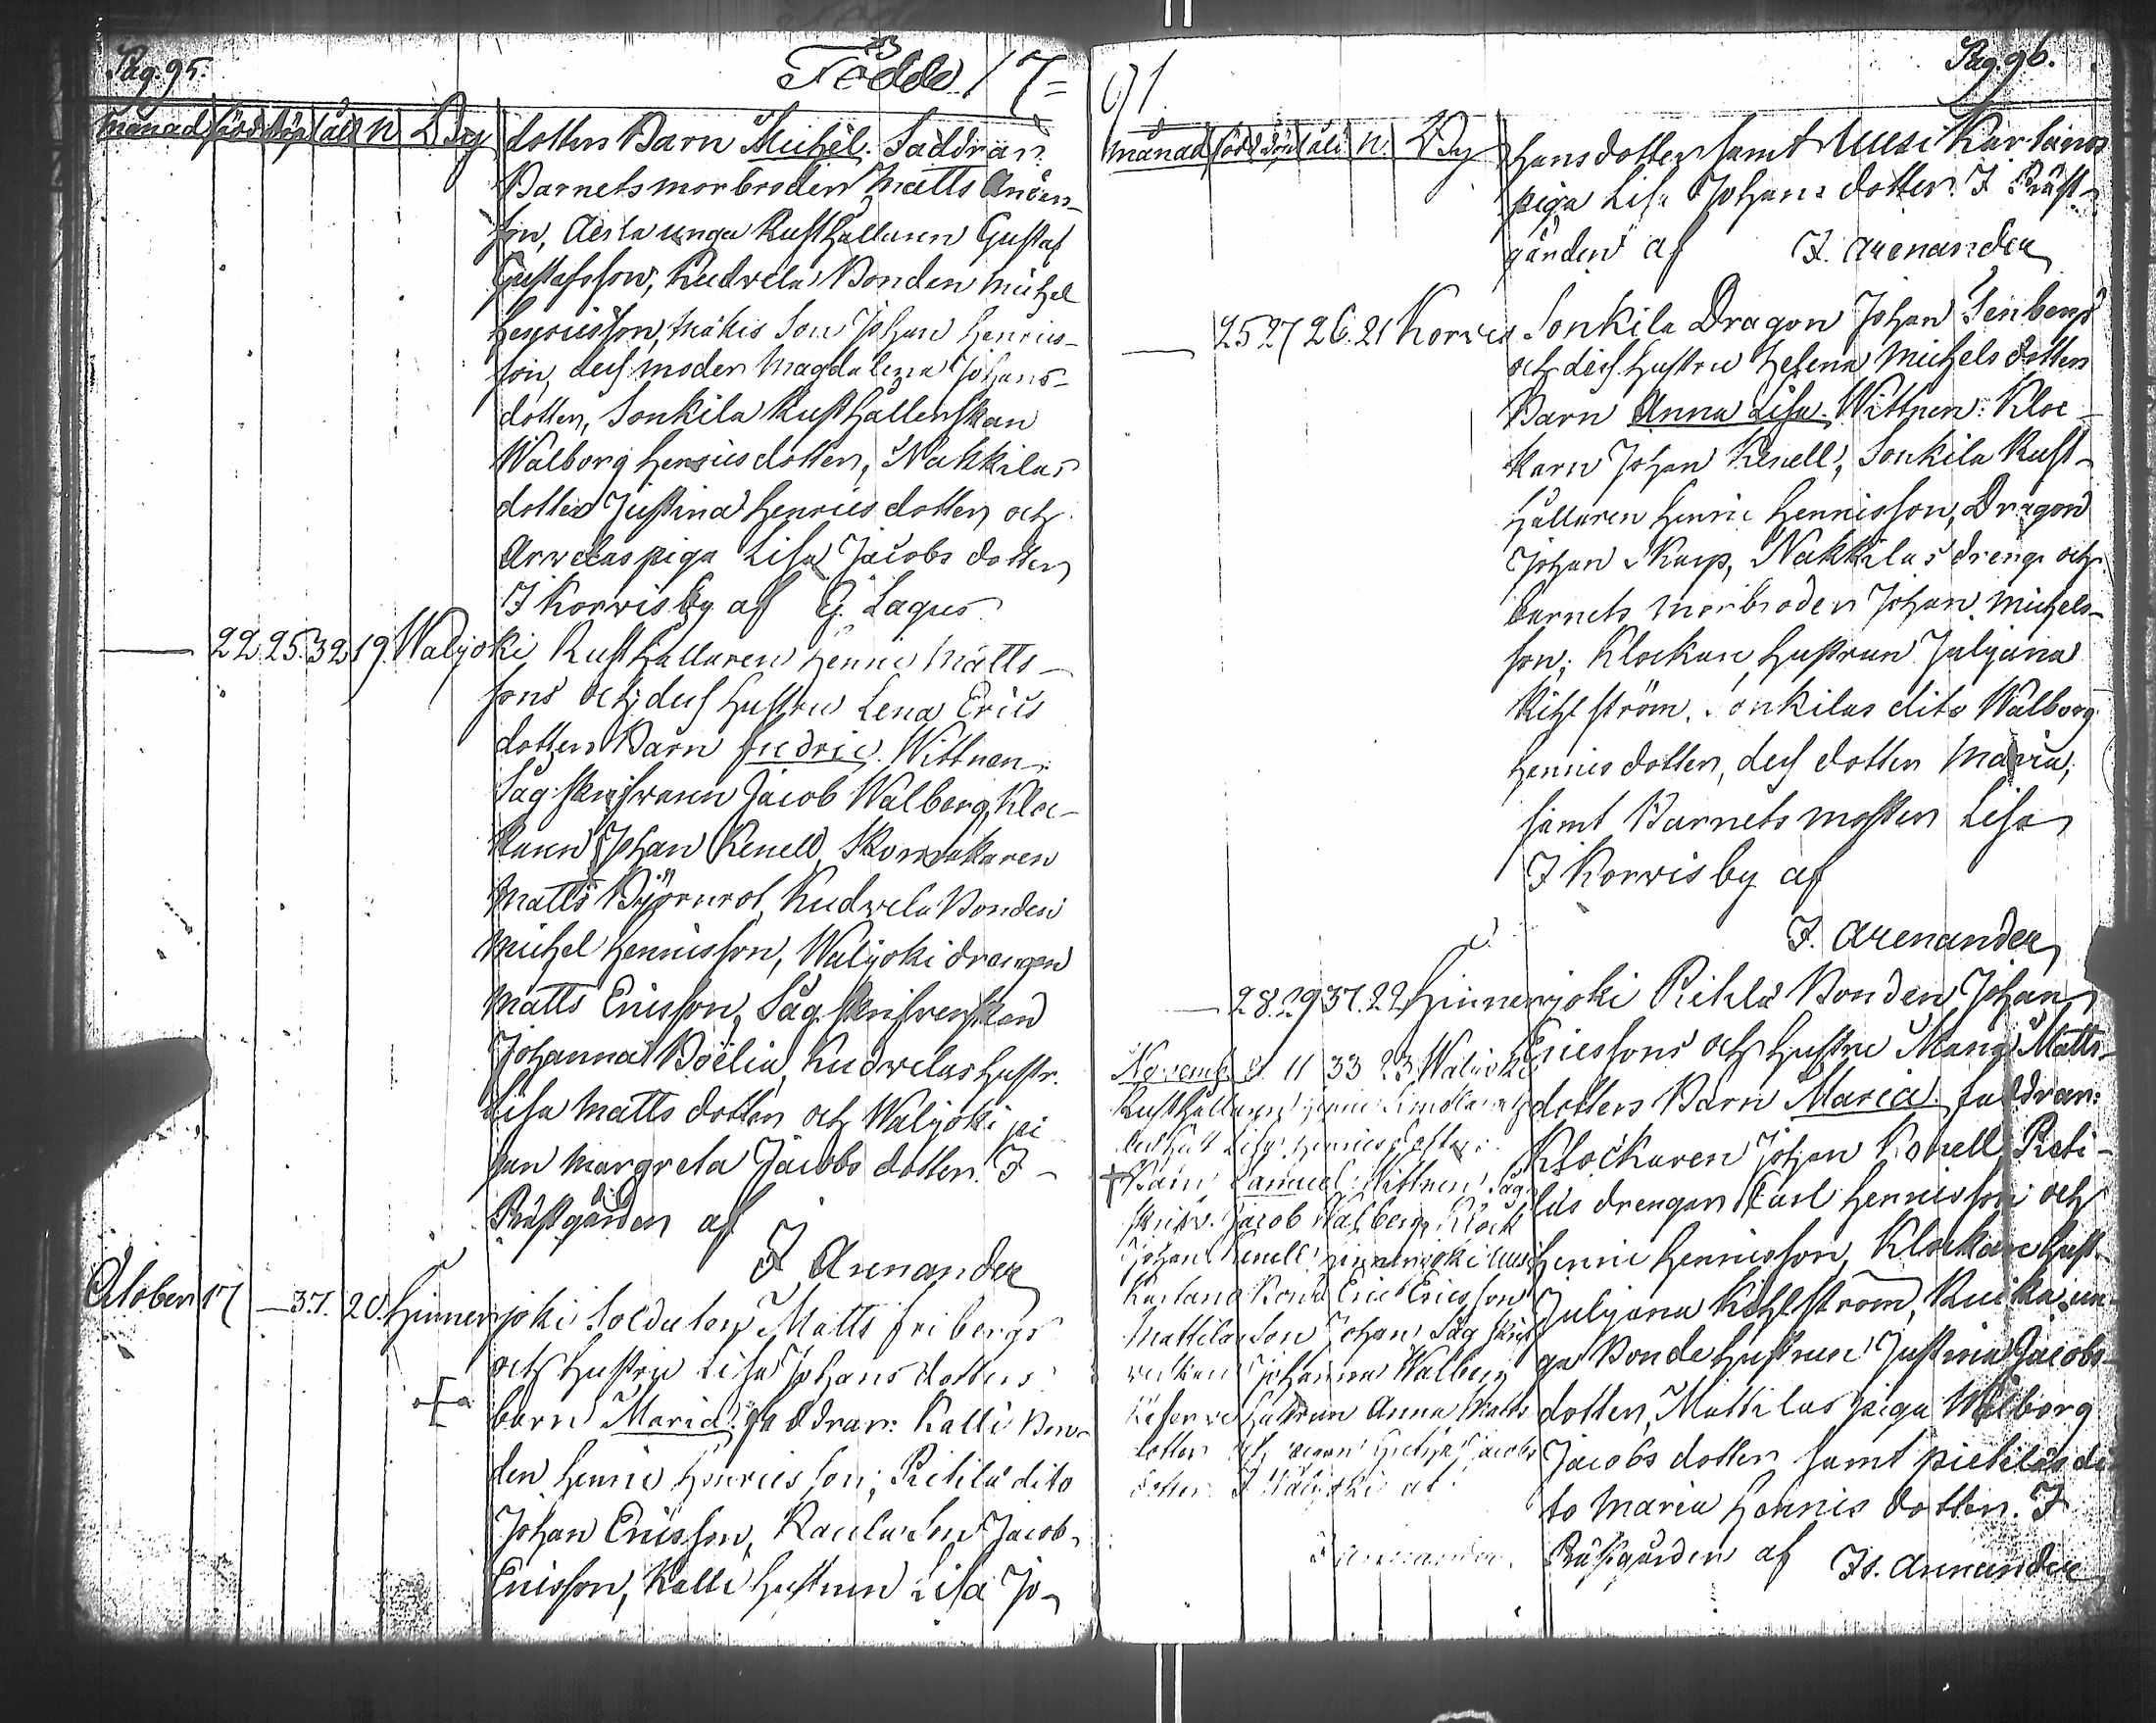 Pag. 95.
Födde 17=
månad född döpt åld. n. By
dotters Barn Michel. Faddrar:
Barnets morbroder Matts Anders-
son, Aerla unga Rusthållaren Gustaf
Gustafsson, Kudwela Bonden Michel
Henricsson, Mäkis Son Johan Henrics-
son, dess moder Magdalena Johans-
dotter, Sonkila Rusthållerskan
Walborg Henricsdotter, Nakkilas
dotter Justina Henricsdotter och
Arwelas piga Lisa Jacobs dotter
I Korwis by af G. Lagus
22 25 32 19. Walijoki Rusthållaren Henric Matts-
sons och dess hustru Lena Erics
dotters Barn Fredric. Wittnen:
Sågskrifwaren Jacob Walberg, Kloc-
karen Johan Renell, Skomakaren
Matts Björnrot, Kudwela Bonden
Michel Henricsson, Walijoki drengen
Matts Ericsson, Sågskrifwerskan
Johanna Boëlia, Kudwelas hustr.
Lisa Matts dotter och Walijoki pi-
gan Margreta Jacobs dotter. I
Prästgården af
I. Arenander
October 17 — 37. 20. Hinnerjoki Soldaten Matts Fribergs
och hustru Lisa Johans dotters
barn Maria. Faddrar: Kalli Bon-
den Henric Henricsson, Rihla dito
Johan Ericsson, Raula Son Jacob
Ericsson, Kalli hustrun Lisa Jo-
91.
Pag. 96.
månad född döpt åld. n. By
hansdotter samt Uusi Kartanos
piga Lisa Johans dotter. I Präst-
gården af I. Arenander
— 25 27 26. 21 Korwis Sonkila Dragon Johan Stenbergs
och dess hustru Helena Michels dotters
Barn Anna Lisa. Wittnen: Kloc-
karen Johan Renell, Sonkila Rust-
hållaren Henric Henricsson, Dragon
Johan Skarp, Nakkilas dreng och
barnets morbroder Johan Michels-
son; Klockare hustrun Julyana
Kihlström, Sonkilas dito Walborg
Henricsdotter, dess dotter Maria,
samt Barnets moster Lisa
I Korwis by af
I. Arenander
— 28. 29 37. 22. Hinnerjoki Rihla Bonden Johan
Ericssons och hustru Maria Matts-
dotters Barn Maria. Faddrar:
Klockaren Johan Renell,
las drengar Carl Henricsson och
Henric Henricsson, Klockare hust.
Julyana Kihlström, Ruika un-
ga Bonde hustrun Justina Jacobs-
dotter, Mattilas piga Walborg
Jacobs dotter samt di-
to Maria Henrics dotter. I
Prästgården af Is. Arenander
Novemb. 11 33 23 Walijoki
Rusthållaren Henric och
des hust. Lisa Henricsdotters
Barn Samuel. Wittnen: Såg
skrifv. Jacob Walberg, Klock
Johan Renell, Hinnerjoki Uusi
Kartano Bond. Eric Ericsson
Mattilas Son Johan, Såg skrif
verskan Johanna Walberg
hustrun Anna Matts
dotter och Jacobs
dotter. I Walijoki af
I Arenander.